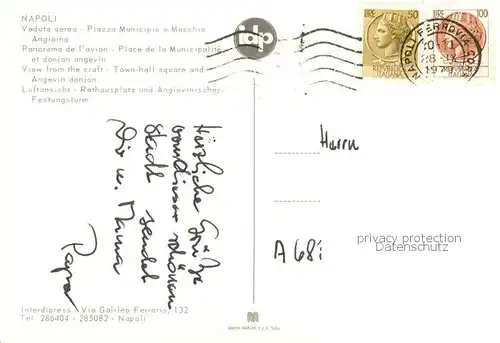 NAPOLI
Veduta aerea - Piazza Municipio e Maschio
Angioino
Panorama de l'avion - Place de la Municipalité
et donjon angevin
View from the craft - Town-hall square and
Angevin donjon
Luftansicht - Rathausplatz und Angiovinischer
Festungsturm
idp
LIRE 50
LIRE 100
NAPOLI FERROVIA
1979
Herzliche Grüße
von dieser schönen
Stadt sendet
Dir u. Mama
Papa
Herrn
A 68i
privacy protection
Datenschutz
Interdipress - Via Galileo Ferraris, 132
Tel. 286404 - 285082 - Napoli